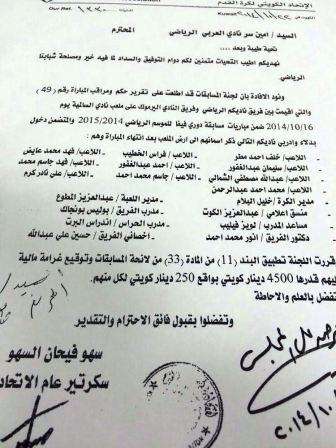 الإتحاد الكويتي لكرة القدم
Our Ref.
Kuwait
السيد / امين سر نادي العربي الرياضي المحترم
تحية طيبة وبعد ...
نهديكم اطيب التحيات متمنين لكم دوام التوفيق والسداد لما فيه خير ومصلحة شبابنا
الرياضي
ونود الافادة بان لجنة المسابقات قد اطلعت على تقرير حكم ومراقب المباراة رقم ( 49 )
والتي اقيمت بين فريق ناديكم وفريق النادي اليرموك على ملعب نادي السالمية يوم
2014/10/16 ضمن مباريات مسابقة دوري فيفا للموسم الرياضي 2015/2014 والمتضمن دخول
بدلاء واداريي ناديكم التالي ذكر اسمائهم الى ارض الملعب بعد انتهاء المباراة وهم :-
اللاعب/ خلف احمد مطر - اللاعب/ فراس الخطيب - اللاعب/ فهد محمد عايض
اللاعب/ سليمان عبدالغفور - اللاعب/ احمد عبدالغفور - اللاعب/ فهد جاسم محمد
اللاعب/ عبدالله مصطفى الشمالي - اللاعب/ جاسم محمد احمد - اللاعب/ علي نادر كرم
اللاعب/ محمد احمد عبدالرحمن
مدير الكرة / خليل البلام - مدير اللعبة / عبدالعزيز المطوع
منسق اعلامي / عبدالعزيز الكوت - مدرب الفريق / بوليس بونجاك
مساعد المدرب / لويز فيليب - مدرب الحراس / اندراس البرت
دكتور الفريق / انور محمد احمد - أخصائي الفريق / حسين علي عبدالله
قررت اللجنة تطبيق البند (11) من المادة (33) من لائحة المسابقات وتوقيع غرامة مالية
عليهم قدرها 4500 دينار كويتي بواقع 250 دينار كويتي لكل منهم.
للتفضل بالعلم والاحاطة
وتفضلوا بقبول فائق الاحترام والتقدير
سهو فيحان السهو
سكرتير عام الاتحاد